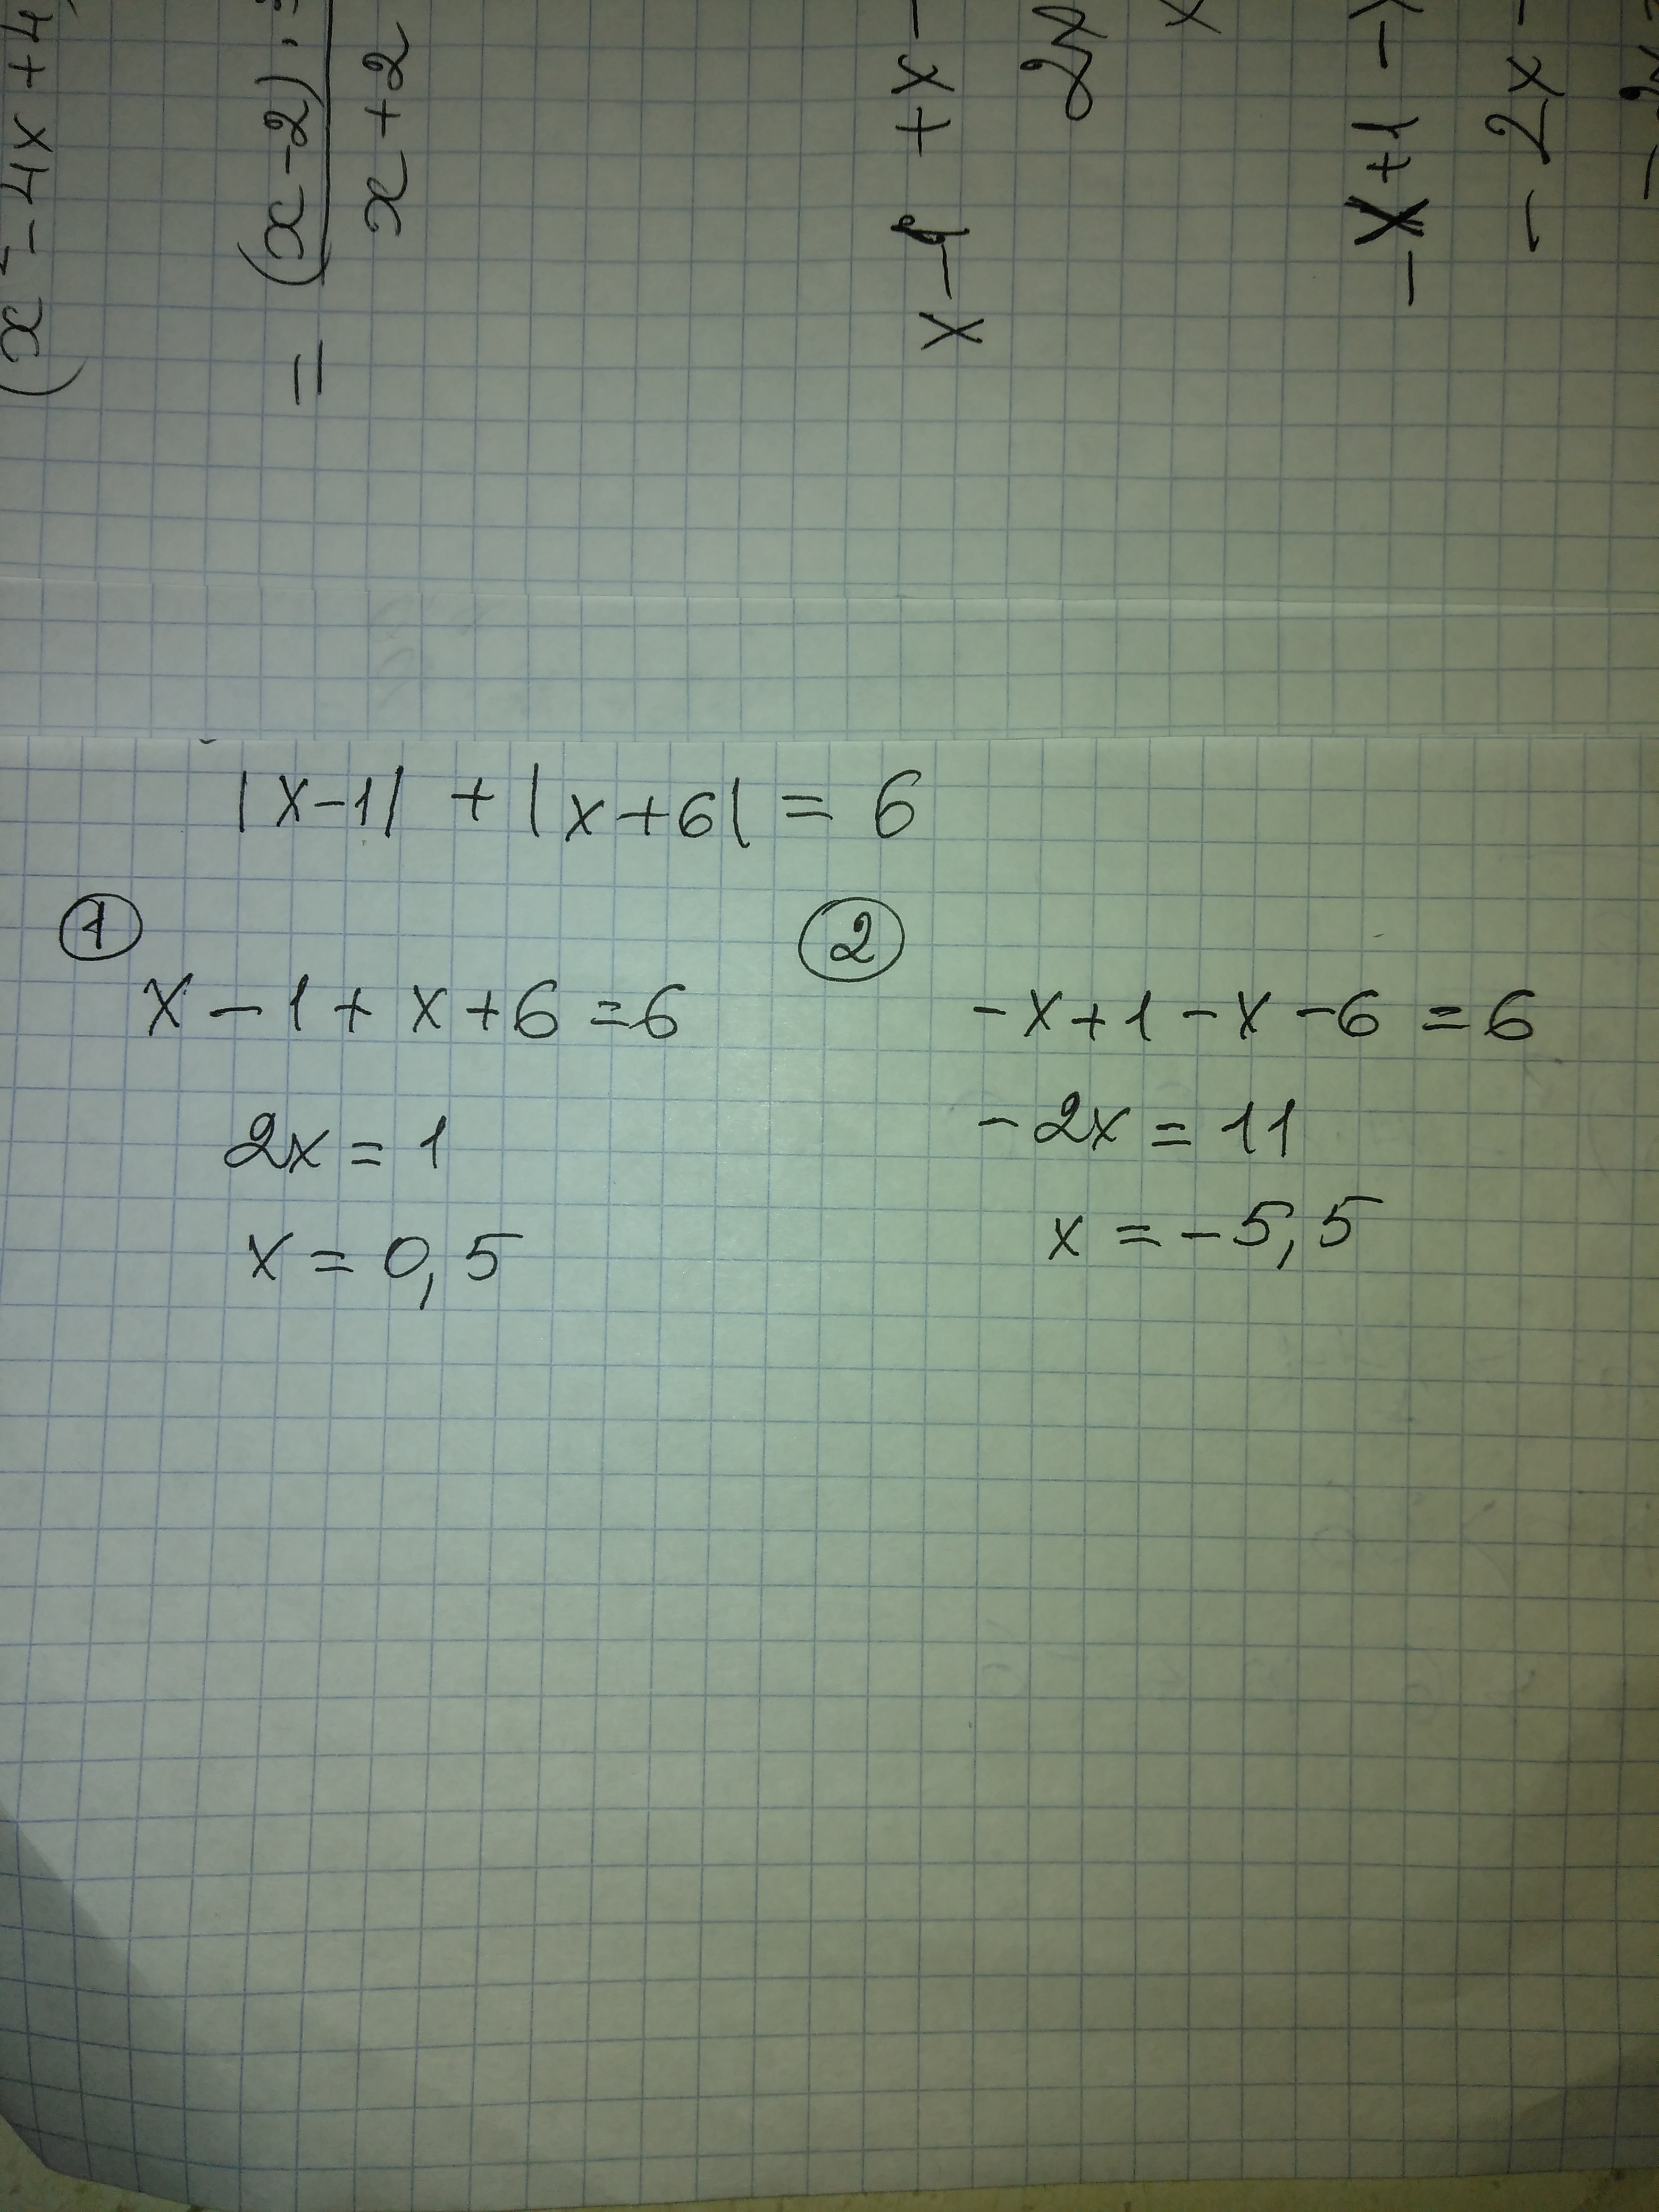 (x² - 4x + 4)
= (x - 2) ·
x + 2
x - 1 + x -
2x
x
- x + 1 -
- 2x -
|x-1| + |x+6| = 6
1
x - 1 + x + 6 = 6
2x = 1
x = 0,5
2
-x + 1 - x - 6 = 6
-2x = 11
x = -5,5